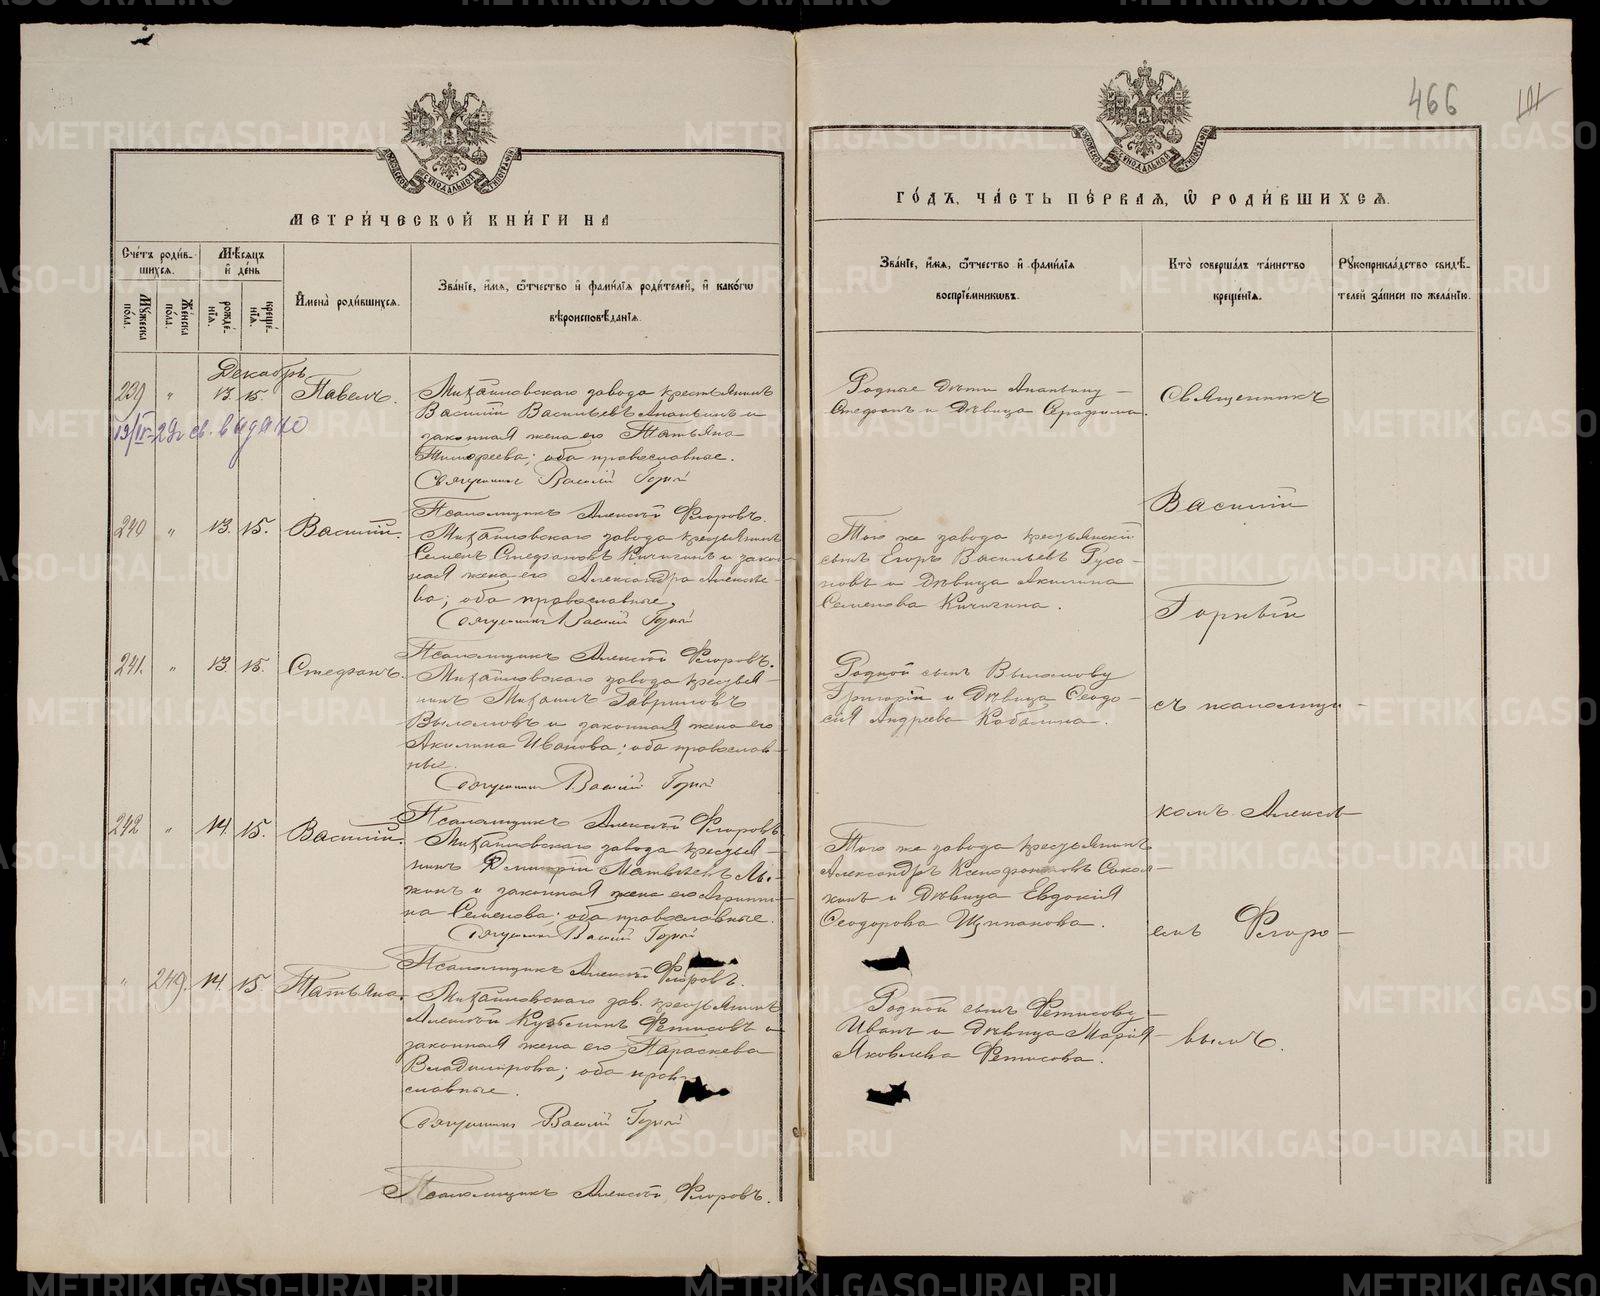 466
МЕТРИ́ЧЕСКОЙ КНИ́ГИ НА
ГО́ДЪ, ЧА́СТЬ ПЕ́РВАѦ, Ѽ РОДИ́ВШИХСѦ.
МОСКОВСКОЙ СѴНОДАЛЬНОЙ ТИПОГРАФІИ
Сче́тъ роди́в-
шихсѧ.
Му́жеска по́ла.
Же́нска по́ла.
Мѣ́сѧцъ
и҆ де́нь
рожде́-
нїѧ.
креще́-
нїѧ.
И҆мена̀ роди́вшихсѧ.
Зва́нїе, и҆́мѧ, ѻ҆́тчество и҆ фами́лїѧ роди́телей, и҆ како́гѡ
вѣроисповѣ́данїѧ.
Зва́нїе, и҆́мѧ, ѻ҆́тчество и҆ фами́лїѧ
воспрїе́мникѡвъ.
Кто̀ соверша́лъ та́инство
креще́нїѧ.
Рꙋкоприкла́дство свидѣ́-
телей за́писи по жела́нїю.
Декабрь
239 " 13. 15. Павелъ.
19/IV-29г св. выдано
Михайловскаго завода крестьянинъ
Василій Васильевъ Ананьинъ и
законная жена его Татьяна
Тимофеева; оба православные.
Священникъ Василій Горный
Псаломщикъ Алексѣй Флоровъ.
Родные дѣти Ананьину
Стефанъ и дѣвица Серафима.
240 " 13. 15. Василій.
Михайловскаго завода крестьянинъ
Семенъ Стефановъ Кичигинъ и закон-
ная жена его Александра Алексѣе-
ва; оба православные.
Священникъ Василій Горный
Псаломщикъ Алексѣй Флоровъ.
Того же завода крестьянскій
сынъ Егоръ Васильевъ Русо-
новъ и дѣвица Акилина
Семенова Кичигина.
241. " 13. 15. Стефанъ.
Михайловскаго завода крестья-
нинъ Михаилъ Гавриловъ
Выломовъ и законная жена его
Акилина Иванова; оба православ-
ные.
Священникъ Василій Горный
Псаломщикъ Алексѣй Флоровъ
Родной сынъ Выломову
Григорій и дѣвица Ѳеодо-
сія Андреева Кабалина.
242 " 14. 15. Василій.
Михайловскаго завода крестья-
нинъ Дмитрій Матвѣевъ
и законная жена его Агриппи-
на Семенова; оба православные.
Священникъ Василій Горный
Псаломщикъ Алексѣй Флоровъ.
Того же завода крестьянинъ
Александръ Ксенофонтовъ Сокол-
кинъ и дѣвица Евдокія
Ѳеодорова Щипанова.
" 249. 14. 15. Татьяна.
Михайловскаго зав. крестьянинъ
Алексѣй Кузьминъ Фетисовъ и
законная жена его Параскева
Владимірова; оба право-
славные.
Священникъ Василій Горный
Псаломщикъ Алексѣй Флоровъ.
Родной сынъ Фетисову
Иванъ и дѣвица Марія
Яковлева Фетисова.
Священникъ
Василій
Горный
съ псаломщи-
комъ Алексѣ-
емъ Флоро-
вымъ.
METRIKI.GASO-URAL.RU